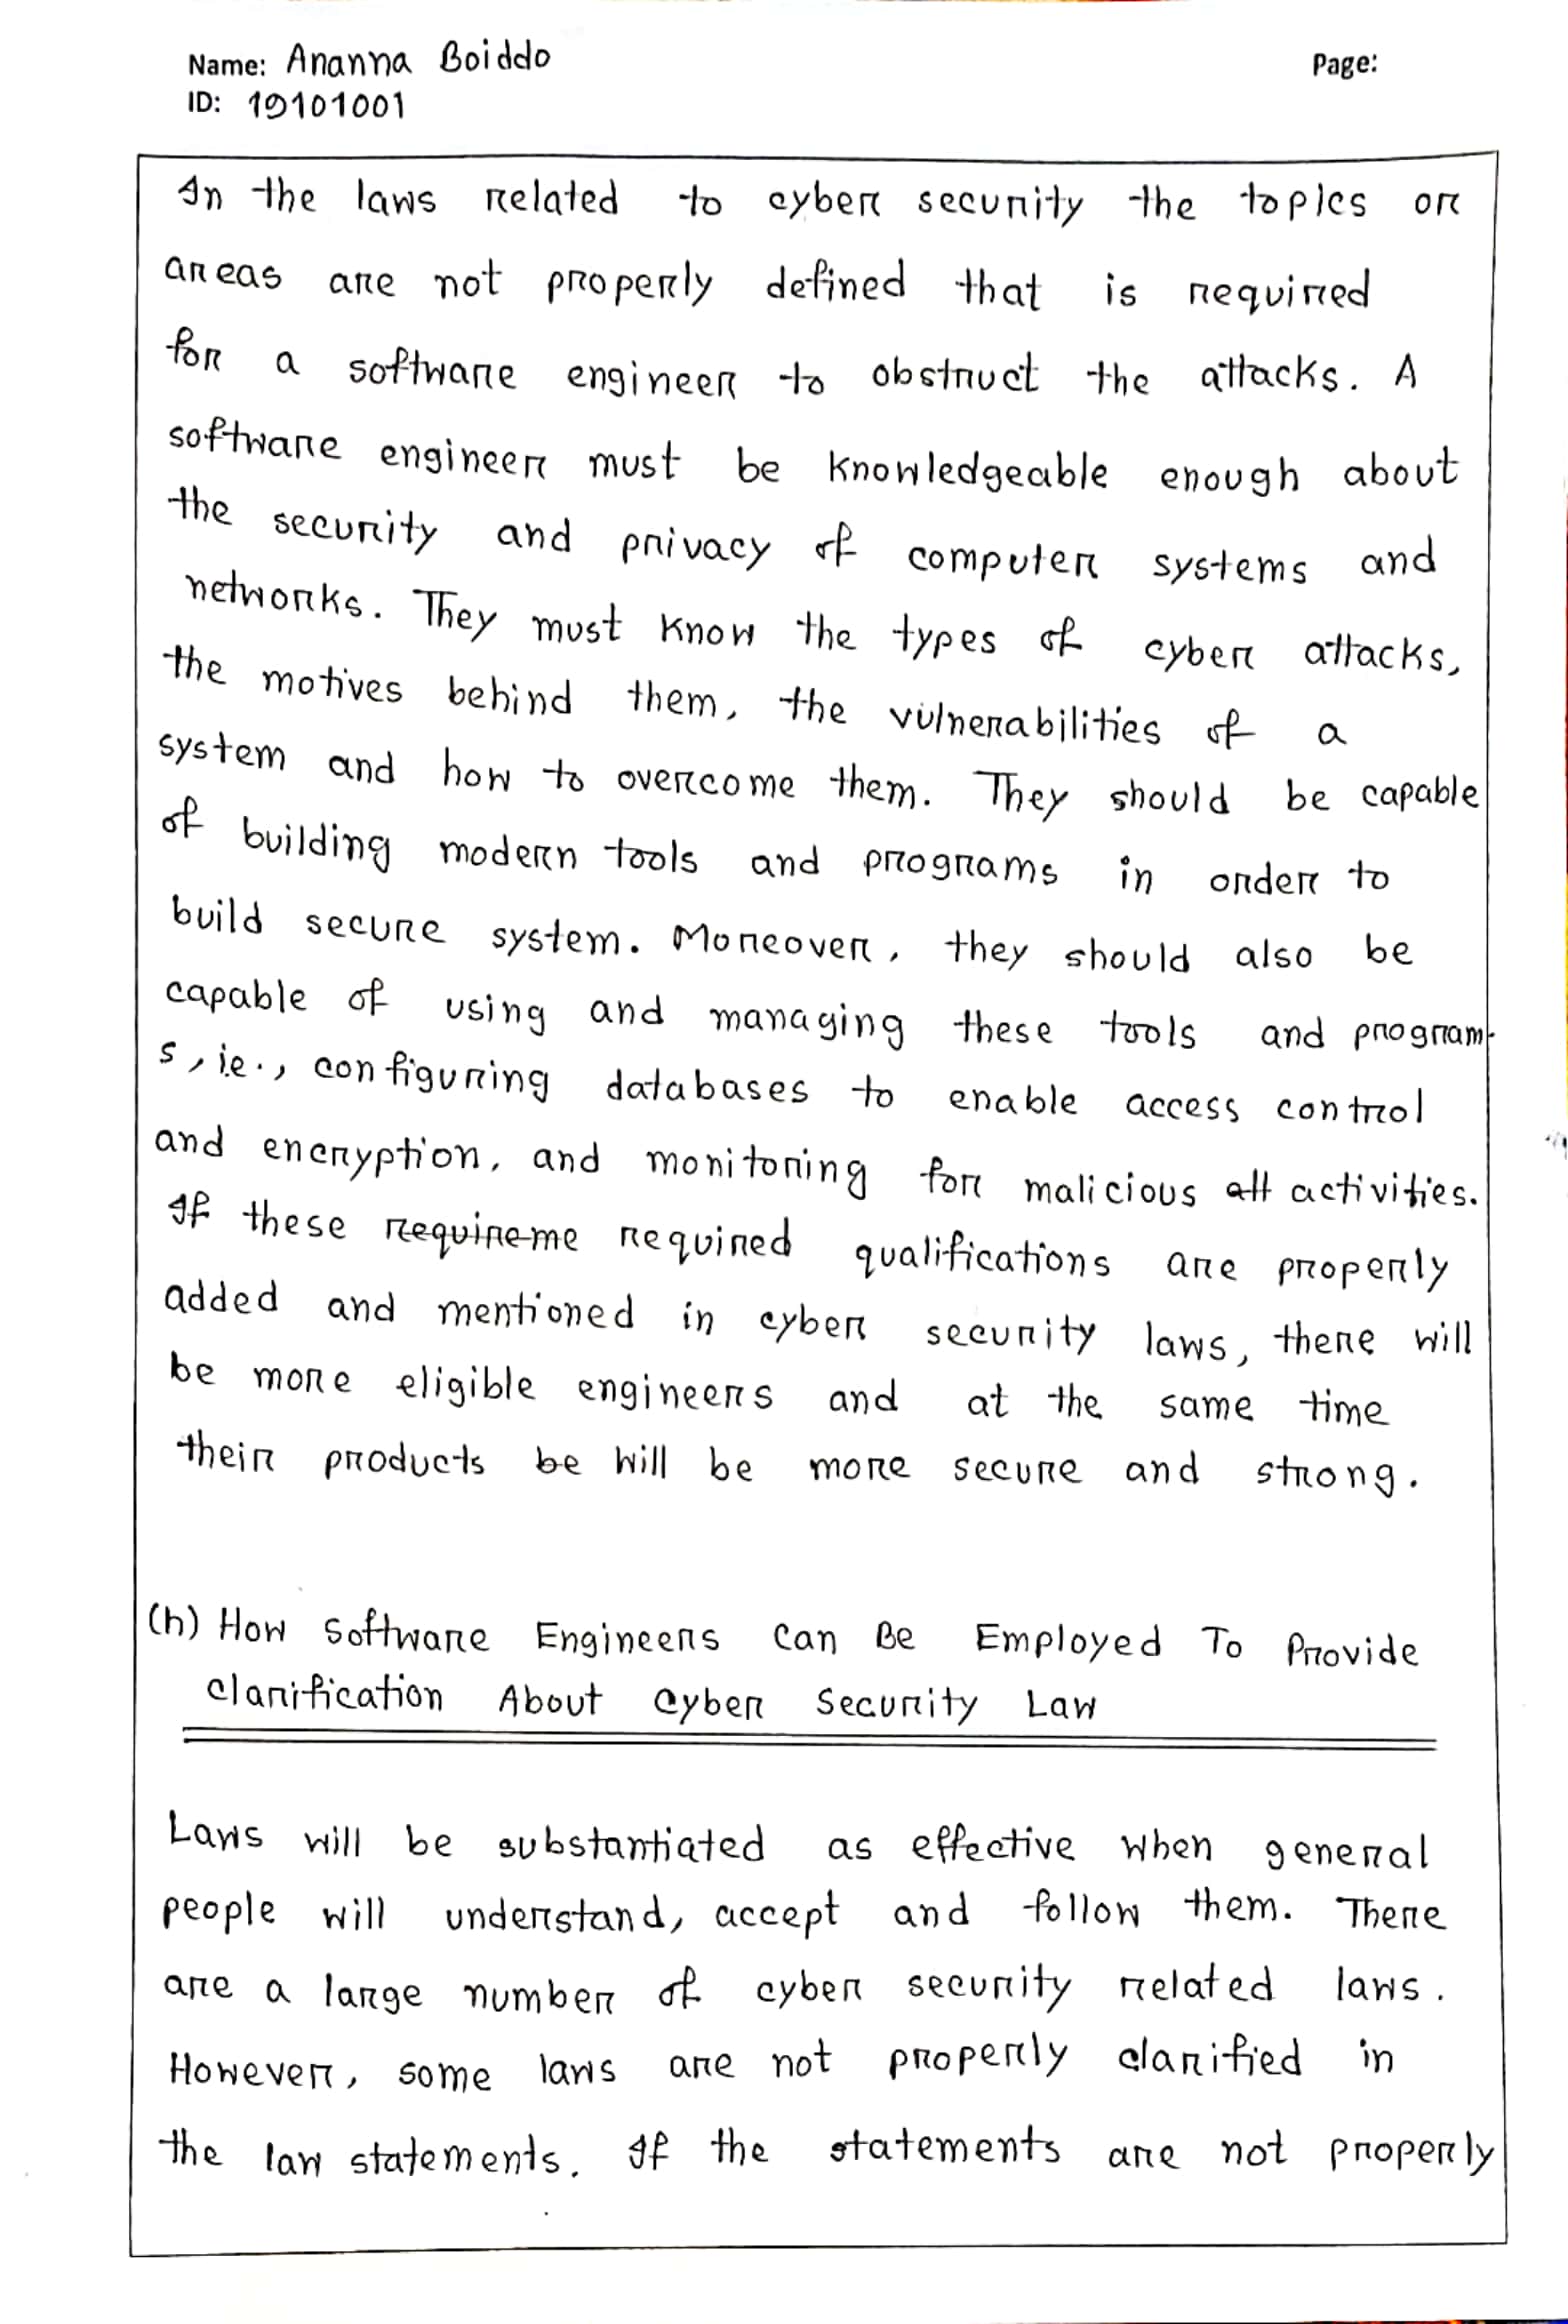 Name: Ananna Boiddo
Page:
ID: 19101001
In the laws related to cyber security the topics or
areas are not properly defined that is required
for a software engineer to obstruct the attacks. A
software engineer must be knowledgeable enough about
the security and privacy of computer systems and
networks. They must know the types of cyber attacks,
the motives behind them, the vulnerabilities of a
system and how to overcome them. They should be capable
of building modern tools and programs in order to
build secure system. Moreover, they should also be
capable of using and managing these tools and program-
s, i.e., configuring databases to enable access control
and encryption, and monitoring for malicious att activities.
If these requireme required qualifications are properly
added and mentioned in cyber security laws, there will
be more eligible engineers and at the same time
their products be will be more secure and strong.
(h) How Software Engineers Can Be Employed To Provide
Clarification About Cyber Security Law
Laws will be substantiated as effective when general
people will understand, accept and follow them. There
are a large number of cyber security related laws.
However, some laws are not properly clarified in
the law statements. If the statements are not properly